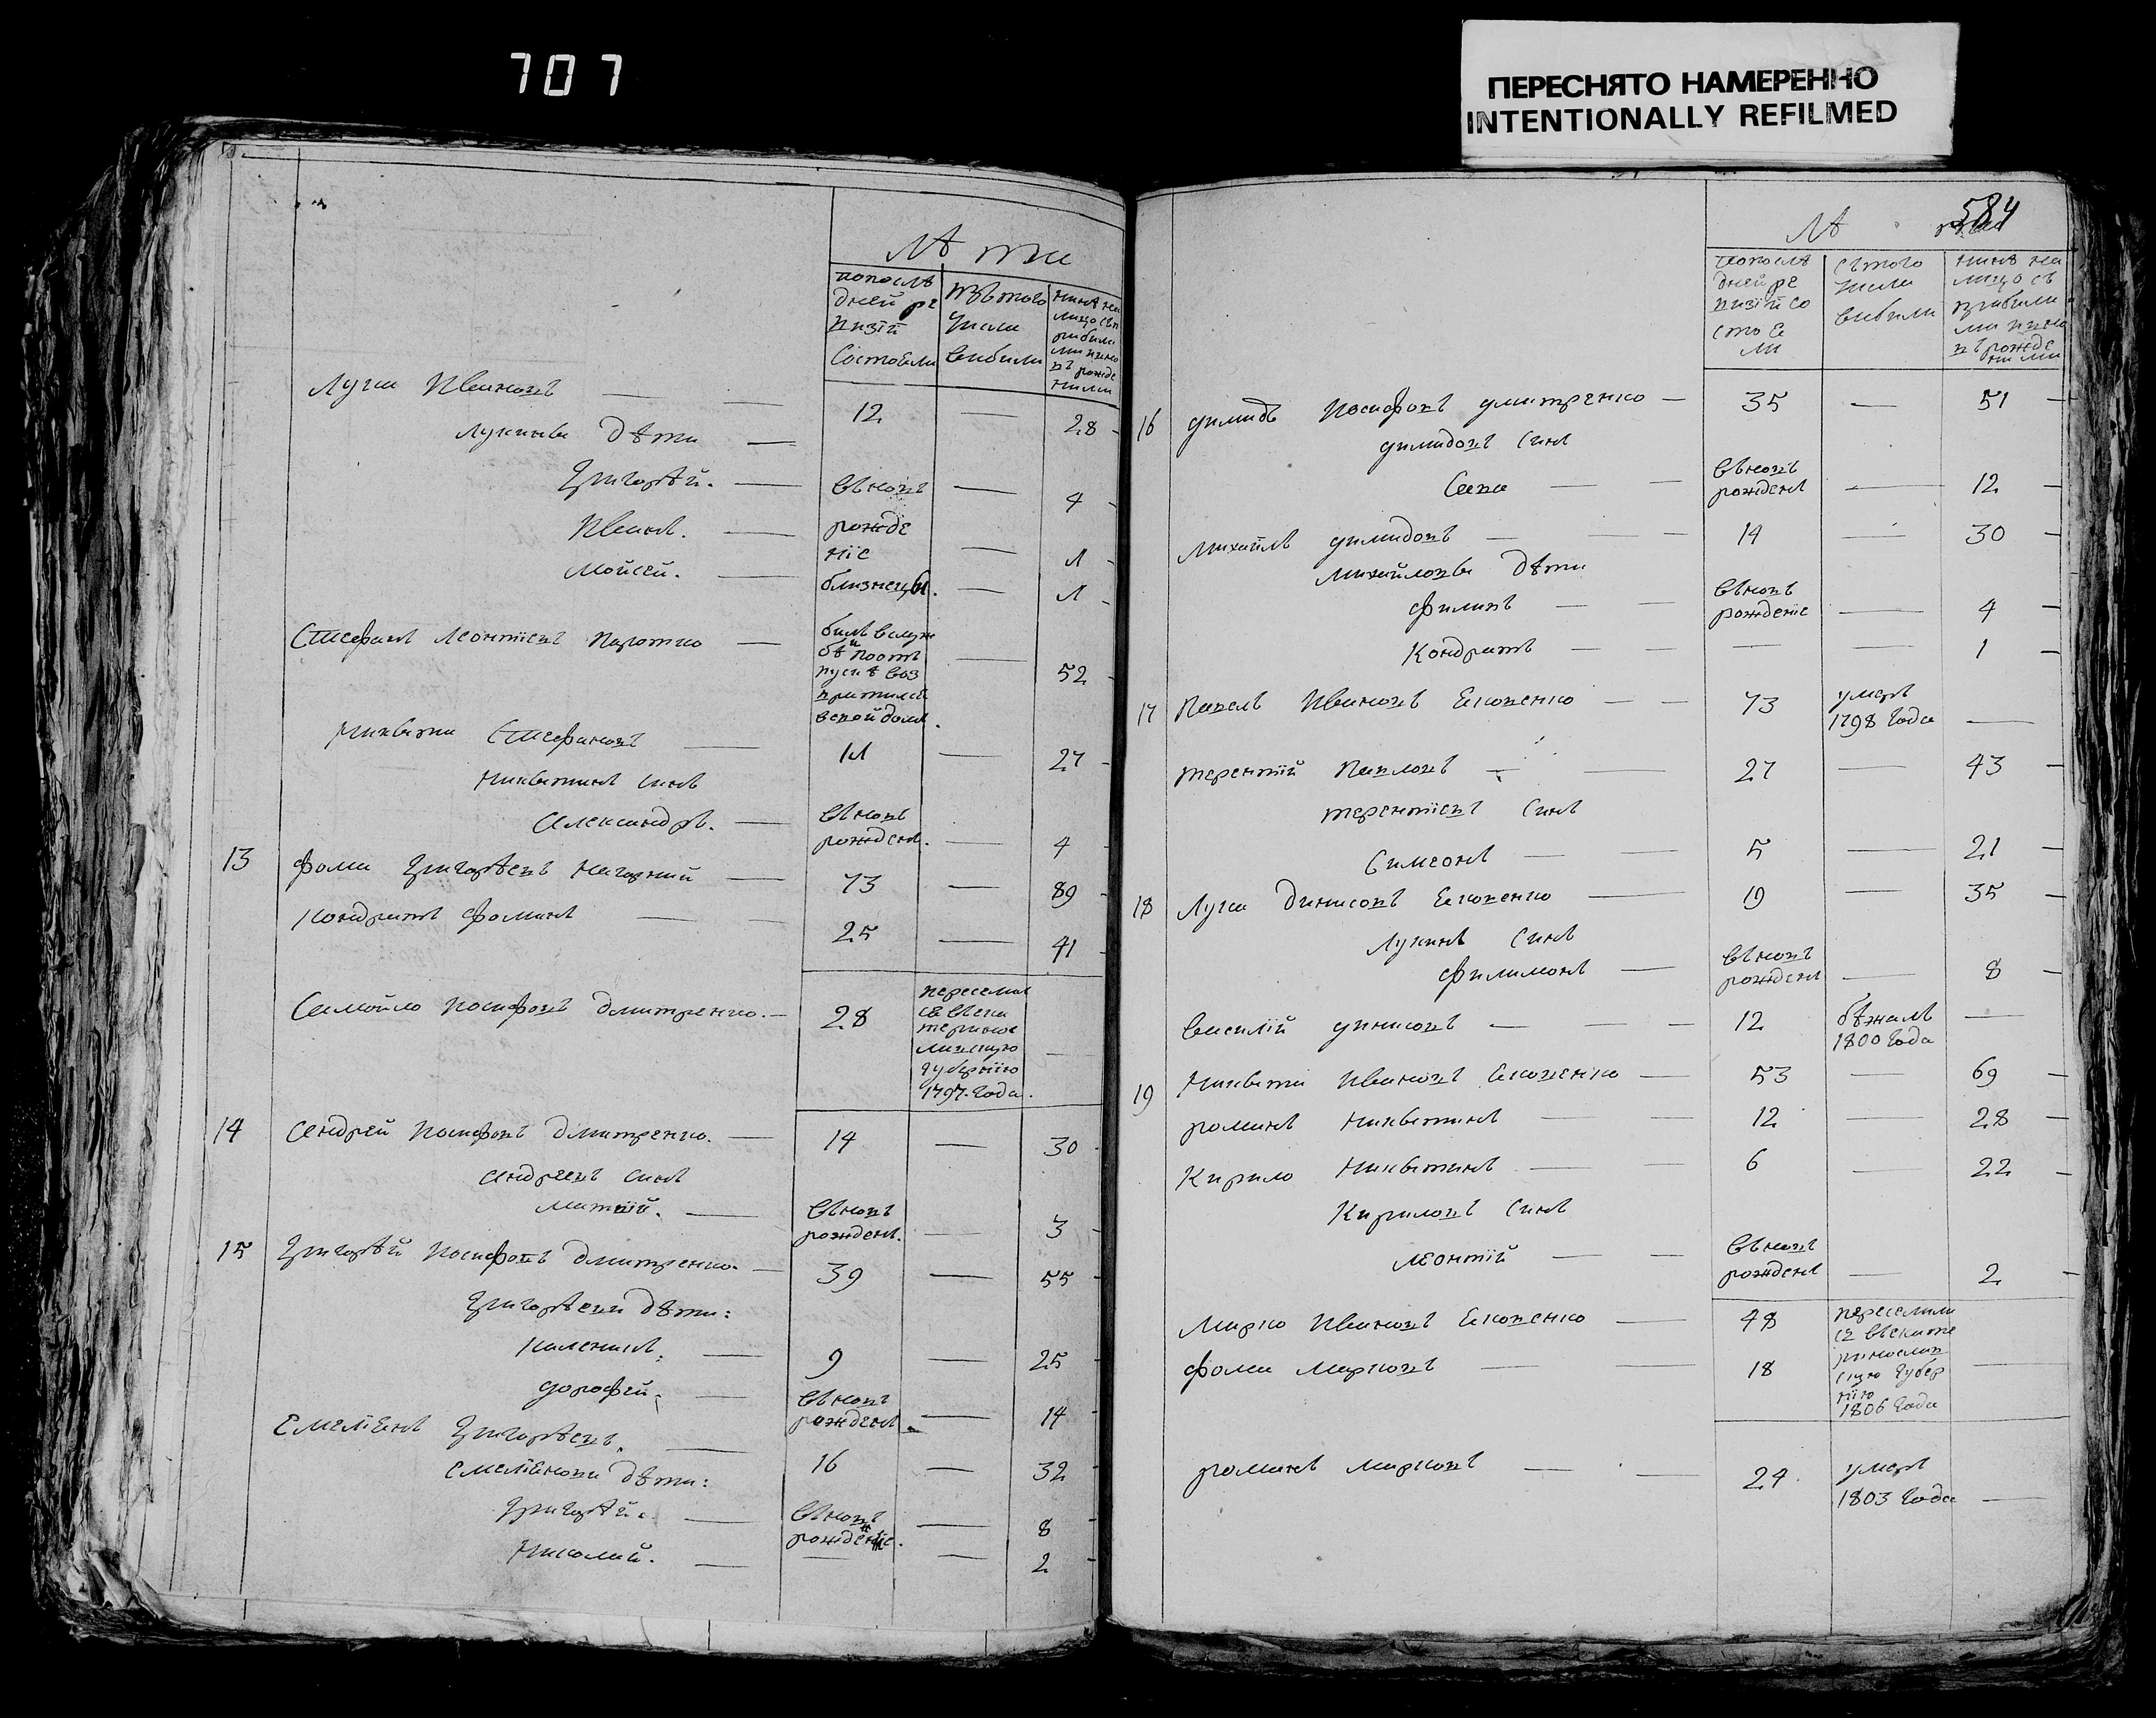 707
ПЕРЕСНЯТО НАМЕРЕННО
INTENTIONALLY REFILMED
Лѣта
попослѣ
дней ре
визіи
состояли
изътого
числа
выбыли
нынѣ на
лицо съп
рибылы
ми ивно
въ рожде
ними
Лука Ивановъ — 12 — 28
Лукины дѣти
Григорѣй. — вновъ — 4
Иванъ. — рожде
ніе — 1
Мойсей. — близнецы. — 1
Стефанъ Леонтіевъ — 52
былъ вслуж
бѣ и поот
пускѣ воз
вратился
всвой домъ.
Никита Стефановъ — 11 — 27
Никитинъ синъ
Александръ. — вновь
рожденъ. — 4
13 Фома Григорѣевъ Нагорний — 73 — 89
Кондратъ Фоминъ — 25 — 41
Самойло Іосифовъ Дмитренко. — 28
переселил
ся въека
терино
славскую
губернію
1797. Года. —
14 Андрей Іосифовъ Дмитренко. — 14 — 30
Андреевъ синъ
Матвій. — вновъ
рожденъ. — 3
15 Григорѣй Іосифовъ Дмитренко. — 39 — 55
Григорѣеви дѣти:
Каленикъ. — 9 — 25
Дорофей. — вновъ
рожденъ — 14
Емеліянъ Григорѣевъ. — 16 — 32
Емеліянови дѣти:
Григорѣй. — вновъ
рожденіе. — 8
Николай. — — — 2
584
Лѣ
попослѣ
дней ре
визіи со
стоя
ли
стого
числа
выбили
нинѣ на
лицо съ
прибили
ми ивно
въ рожде
ними
16 Демидъ Іосифовъ Дмитренко — 35 — 51
Демидовъ синъ
Сава — вновъ
рожденъ — 12
Михайлъ Демидовъ — 14 — 30
Михайловы дѣти
Филипъ — вновъ
рожденіе — 4
Кондратъ — — — 1
17 Павелъ Ивановъ Яковенко — 73 умеръ
1798 Года —
Терентій Павловъ — 27 — 43
Терентіевъ синъ
Симеонъ — 5 — 21
18 Лука Динисовъ Яковенко — 19 — 35
Лукинъ синъ
Филимонъ — вновъ
рожденъ — 8
Василій Динисовъ — 12 бѣжалъ
1800 Года —
19 Никита Ивановъ Яковенко — 53 — 69
Романъ Никитинъ — 12 — 28
Кирило Никитинъ — 6 — 22
Кириловъ синъ
Леонтій — вновъ
рожденъ — 2
Марко Ивановъ Яковенко — 48 переселили
ся въекате
Фома Марковъ — 18 ринослав
скую губер
нію
1806 Года —
Романъ Марковъ — 24 умеръ
1803 Года —